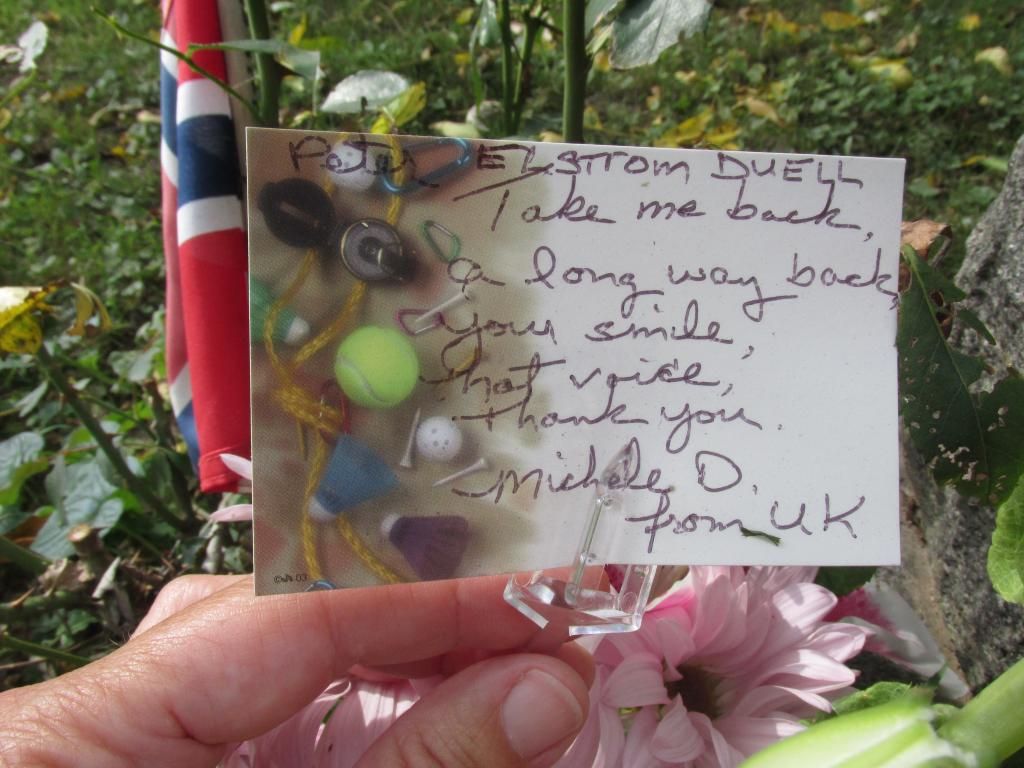 Peter ELSTROM DUELL
Take me back,
a long way back,
your smile,
that voice,
thank you.
Michele D.
from UK